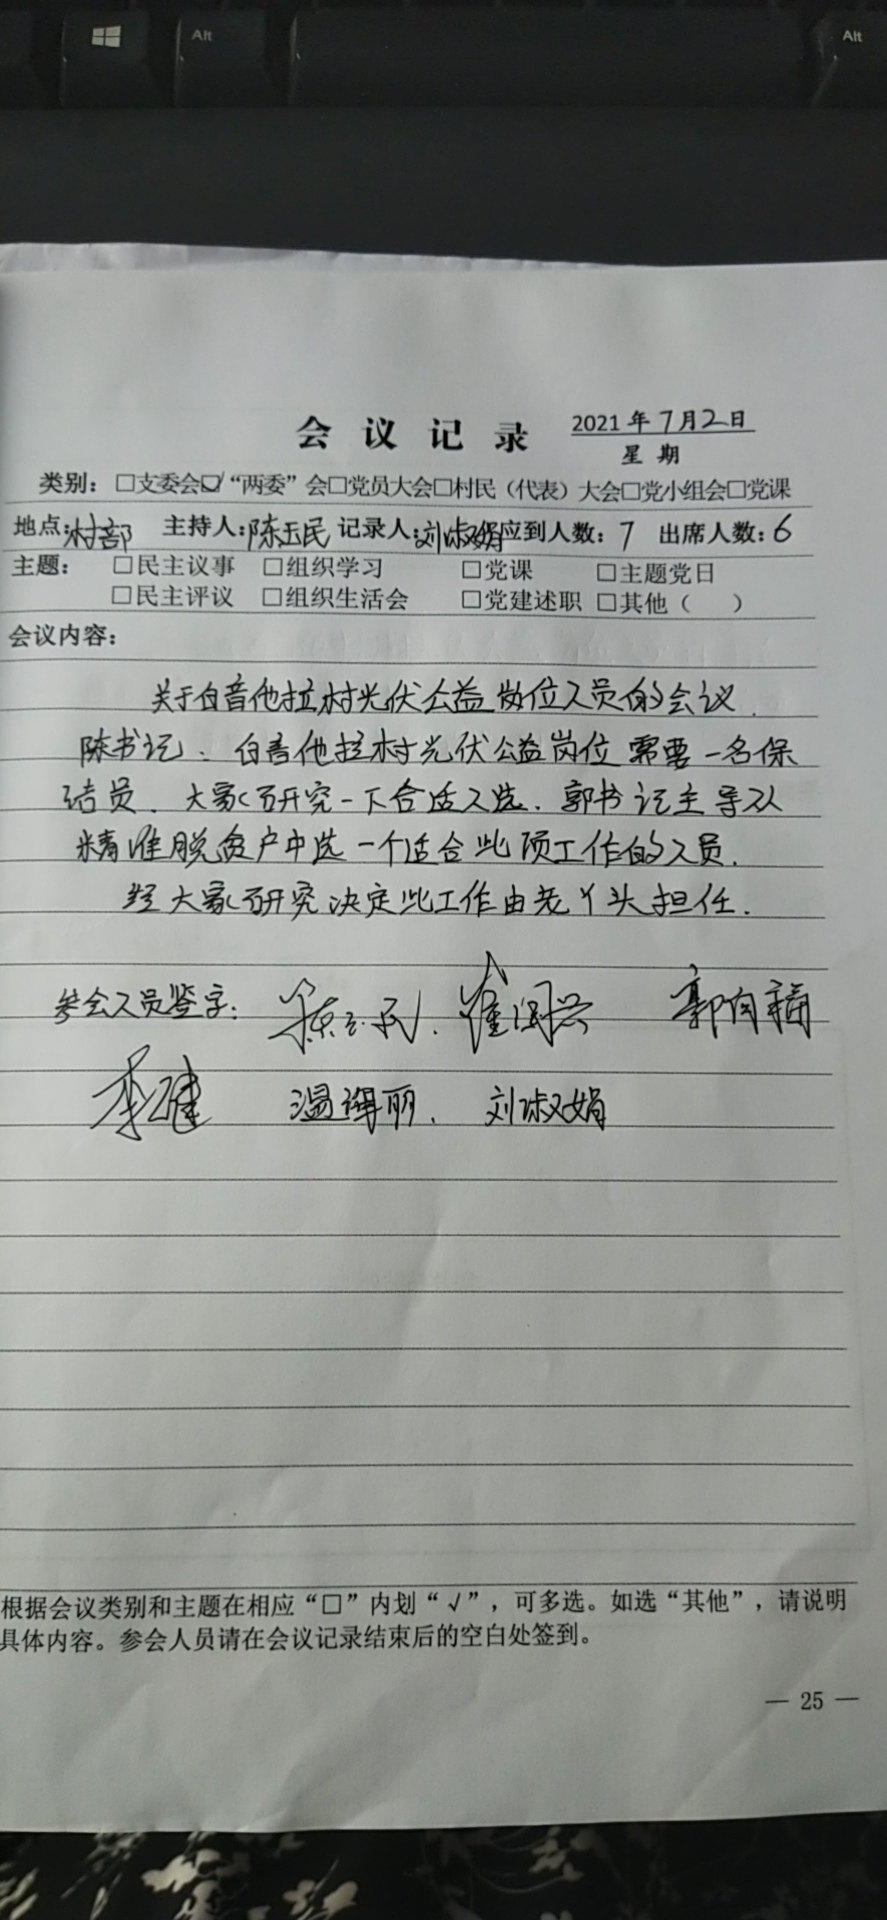 Alt
Alt
会议记录
2021年7月2日
星期
类别：□支委会☑“两委”会□党员大会□村民（代表）大会□党小组会□党课
地点：村部 主持人：陈玉民 记录人：刘淑娟 应到人数：7 出席人数：6
主题： □民主议事 □组织学习 □党课 □主题党日
□民主评议 □组织生活会 □党建述职 □其他（ ）
会议内容：
关于白音他拉村光伏公益岗位人员的会议.
陈书记：白音他拉村光伏公益岗位需要一名保
洁员. 大家研究一下合适人选. 郭书记主导从
精准脱贫户中选一个适合此项工作的人员.
经大家研究决定此工作由老丫头担任.
参会人员签字： 陈玉民. 郭有
李健 温 丽. 刘淑娟
根据会议类别和主题在相应“□”内划“√”，可多选。如选“其他”，请说明
具体内容。参会人员请在会议记录结束后的空白处签到。
— 25 —